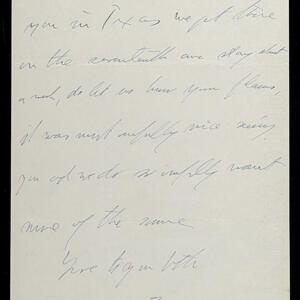 you in Texas we get there
on the seventeenth and stay about
a week, do let us know your plans,
it was most awfully nice seeing
you and we do so awfully want
more of the same
Love to you both